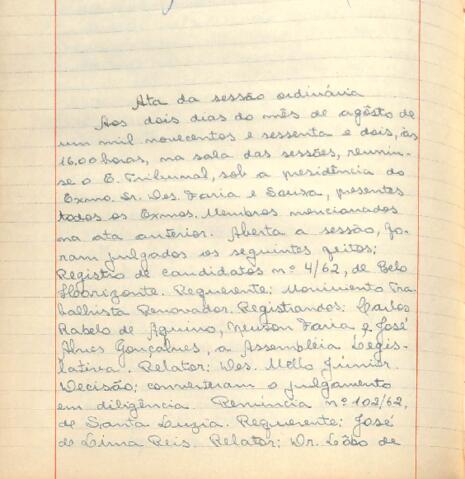 Ata da sessão ordinária
Aos dois dias do mês de agôsto de
um mil novecentos e sessenta e dois, às
16.00 horas, na sala das sessões, reuniu-
se o E. Tribunal, sob a presidência do
Exmo. Sr. Des. Faria e Sousa, presentes
todos os Exmos. Membros mencionados
na ata anterior. Aberta a sessão, fo-
ram julgados os seguintes feitos:
Registro de candidatos nº 4/62, de Belo
Horizonte. Requerente: Movimento Tra-
balhista Renovador. Registrandos: Carlos
Rabelo de Aquino, Newton Faria e José
Alves Gonçalves, a Assembléia Legis-
lativa. Relator: Des. Mello Júnior.
Decisão: converteram o julgamento
em diligência. Renúncia nº 102/62,
de Santa Luzia. Requerente: José
de Lima Reis. Relator: Dr. Lôbo de